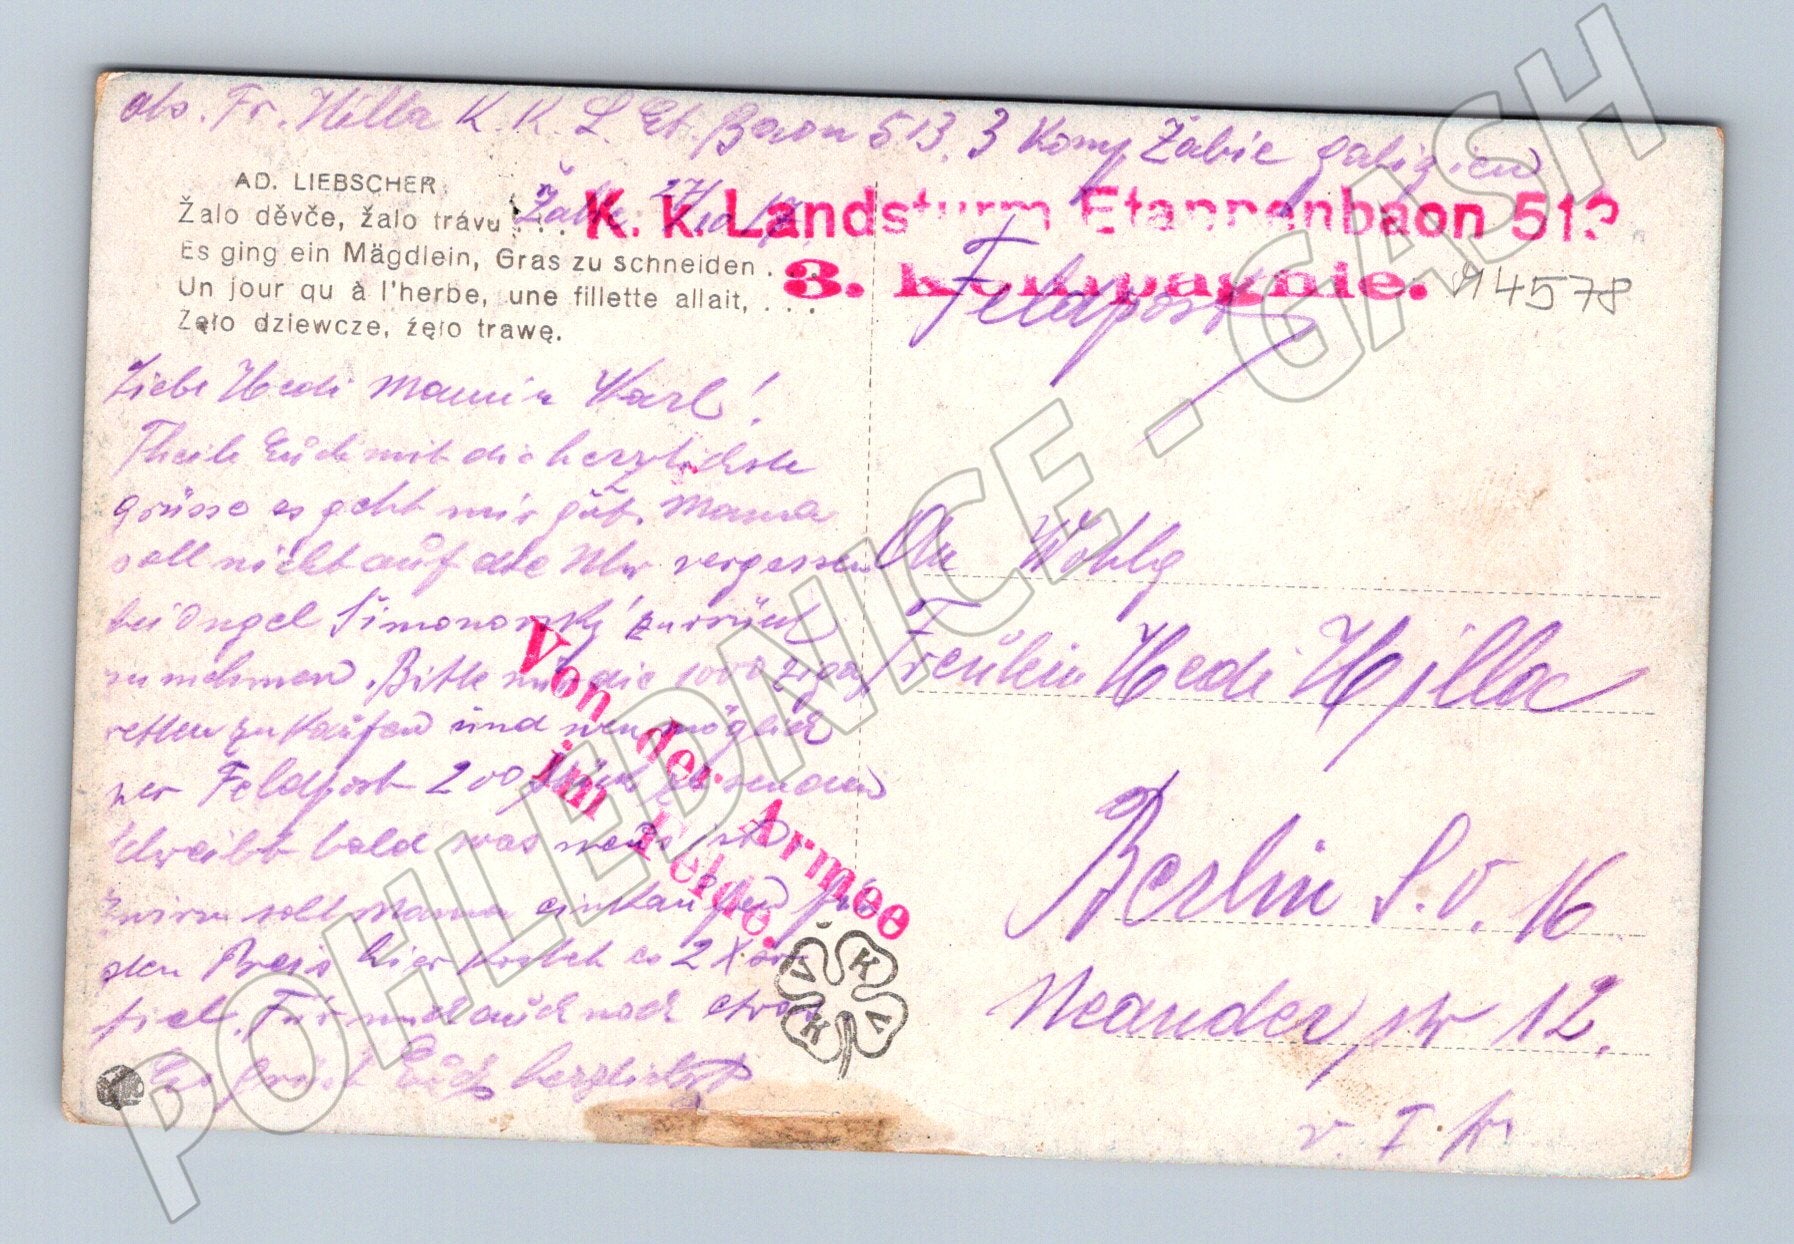 abs. Fr. Hilla K. K. L. Et. Baon 513. 3 Komp Żabie galizien
AD. LIEBSCHER.
Žalo děvče, žalo trávu . . .
27/10 17.
Es ging ein Mägdlein, Gras zu schneiden . . .
Un jour qu à l'herbe, une fillette allait, . . .
Zęło dziewcze, żęło trawę.
K. k. Landsturm Etappenbaon 513
3. Kompagnie.
Feldpost
914578
Liebe Hedi Mama Karl!
Theile Euch mit die herzlichste
grüsse es geht mir gut. Mama
soll nicht auf die Uhr vergessen
bei Simonovský zurück
zu nehmen. Bitte mir die 1000 Ziga
retten zu kaufen und wen möglich
per Feldpost 200 zu senden
Schreibt bald was neues ist
Zwirn soll Mama einkaufen
den Preis hier kostet es 2 K
viel. Für mich auch noch etwas
Es grüsst Euch herzlichst
Von der Armee
im Felde.
An Wohlg
Fräulein Hedi Hilla
Berlin S.O. 16
Neander str 12.
v. I tr
V K K V
POHLEDNICE - GASH